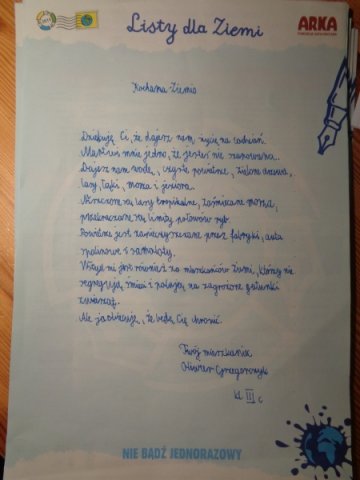 Listy dla Ziemi
ARKA
Kochana Ziemio
Dziękuję Ci, że dajesz nam życie na codzień
Martwi mnie jedno, że jesteś nie szanowana..
Dajesz nam wodę, czyste powietrze, zielone drzewa,
lasy, łąki, morza i jeziora.
Niszczone są lasy tropikalne, zaśmiecane morza,
przekraczane są limity połowów ryb.
Powietrze jest zanieczyszczane przez fabryki, auta
spalinowe i samoloty.
Wstyd mi jest również za mieszkańców Ziemi, którzy nie
segregują śmieci i polują na zagrożone gatunki
zwierząt.
Ale ja obiecuję, że będę Cię chronić.
Twój mieszkaniec
Oliwier Grzegorczyk
kl III c
NIE BĄDŹ JEDNORAZOWY